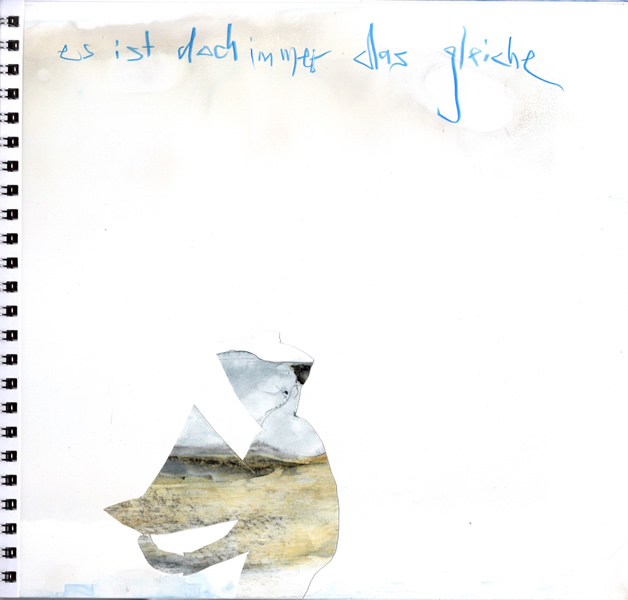 es ist doch immer das gleiche